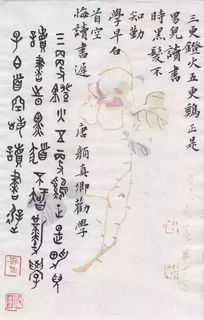 三更鐙火五更鷄正是
男兒讀書
時黑髮不
知勤
學早白
首空
悔讀書遲
唐顏真卿勸學
三更鐙火五更鷄正是男兒
讀書時黑髮不知勤學
早白首空悔讀書遲